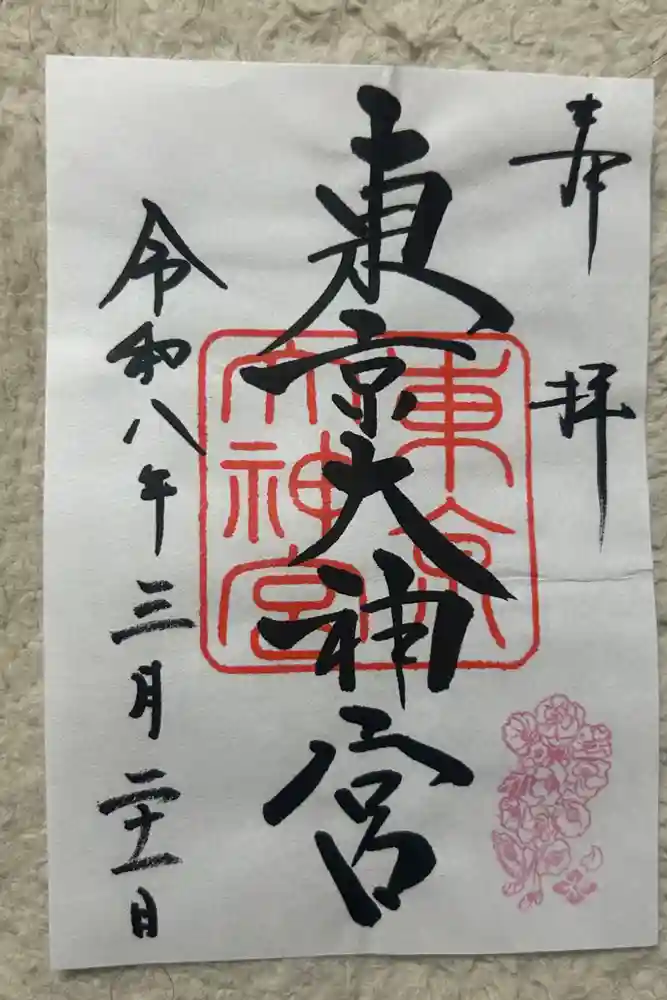 奉拝
東京大神宮
東京
大神宮
令和八年三月二十一日